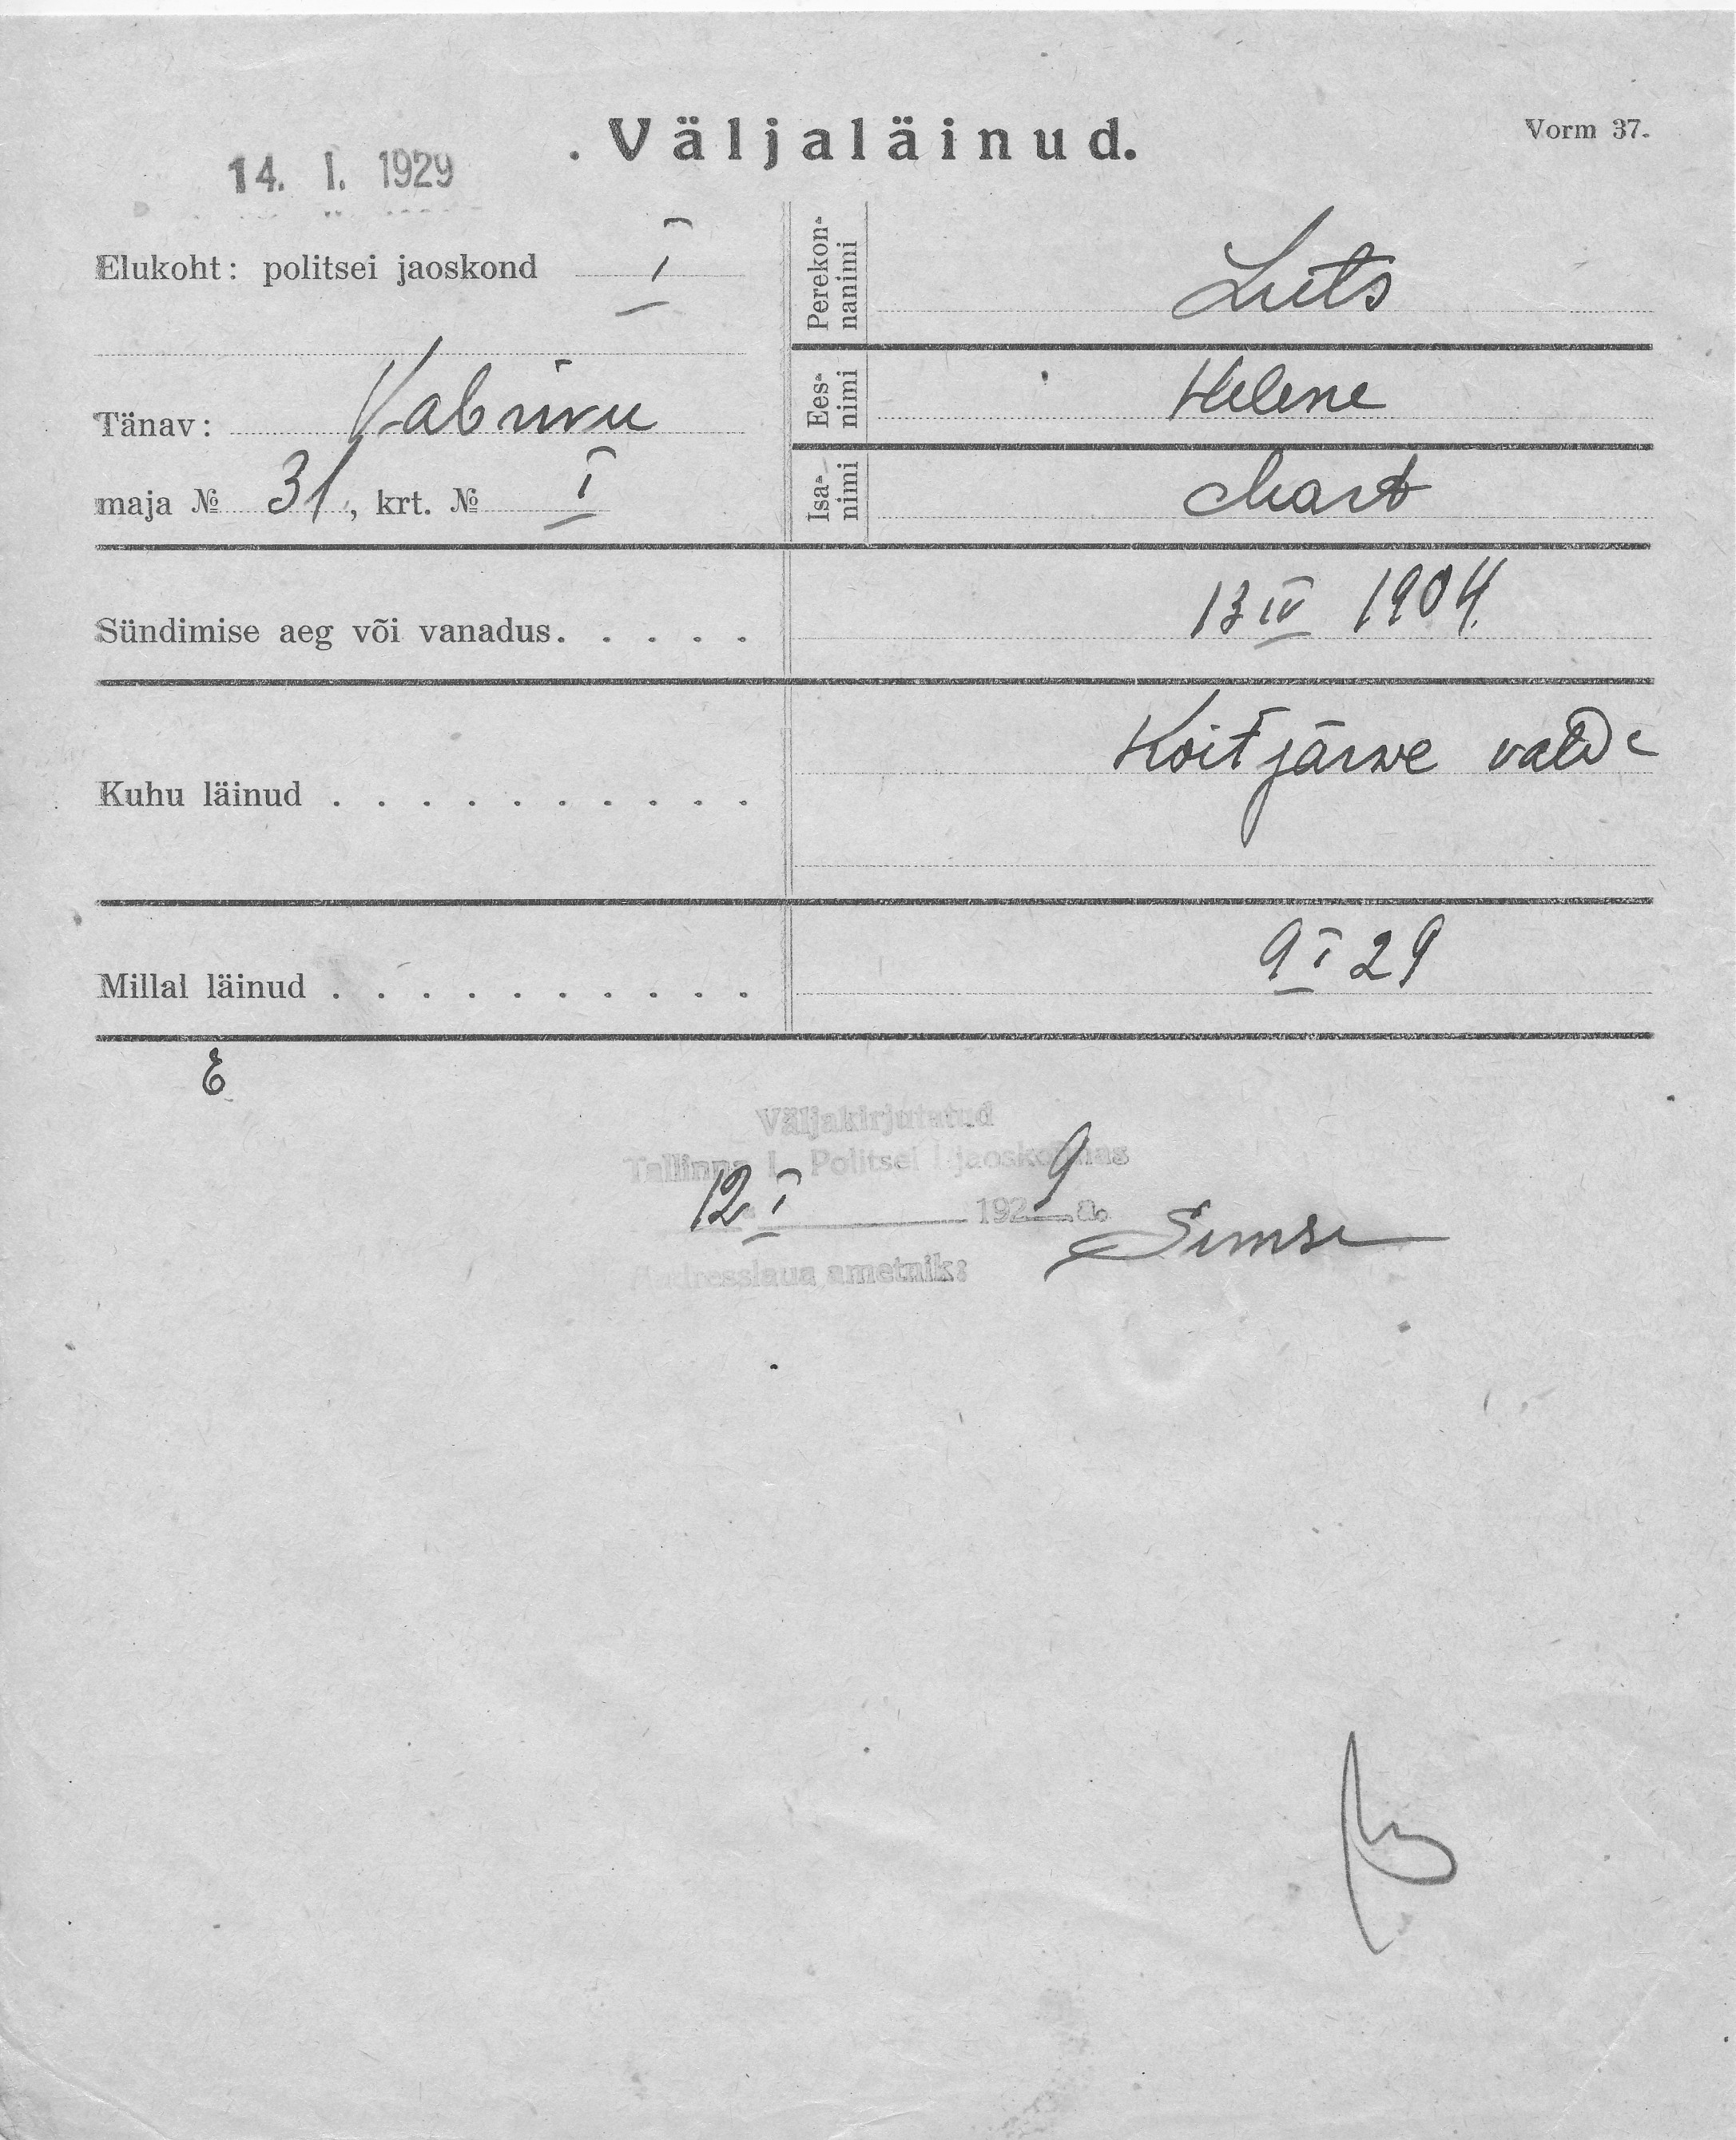 Väljaläinud.
Vorm 37.
14. I. 1929
Elukoht: politsei jaoskond I
Tänav: Vabriku
maja № 31, krt. № I
Perekonnanimi Luts
Eesnimi Helene
Isanimi Mart
Sündimise aeg või vanadus. . . . . 13 IV 1904.
Kuhu läinud . . . . . . . . . . Koitjärwe valda
Millal läinud . . . . . . . . . . 9 I 29
Väljakirjutatud
Tallinna I Politsei jaoskonnas
12 I 1929 a.
Aadresslaua ametnik: